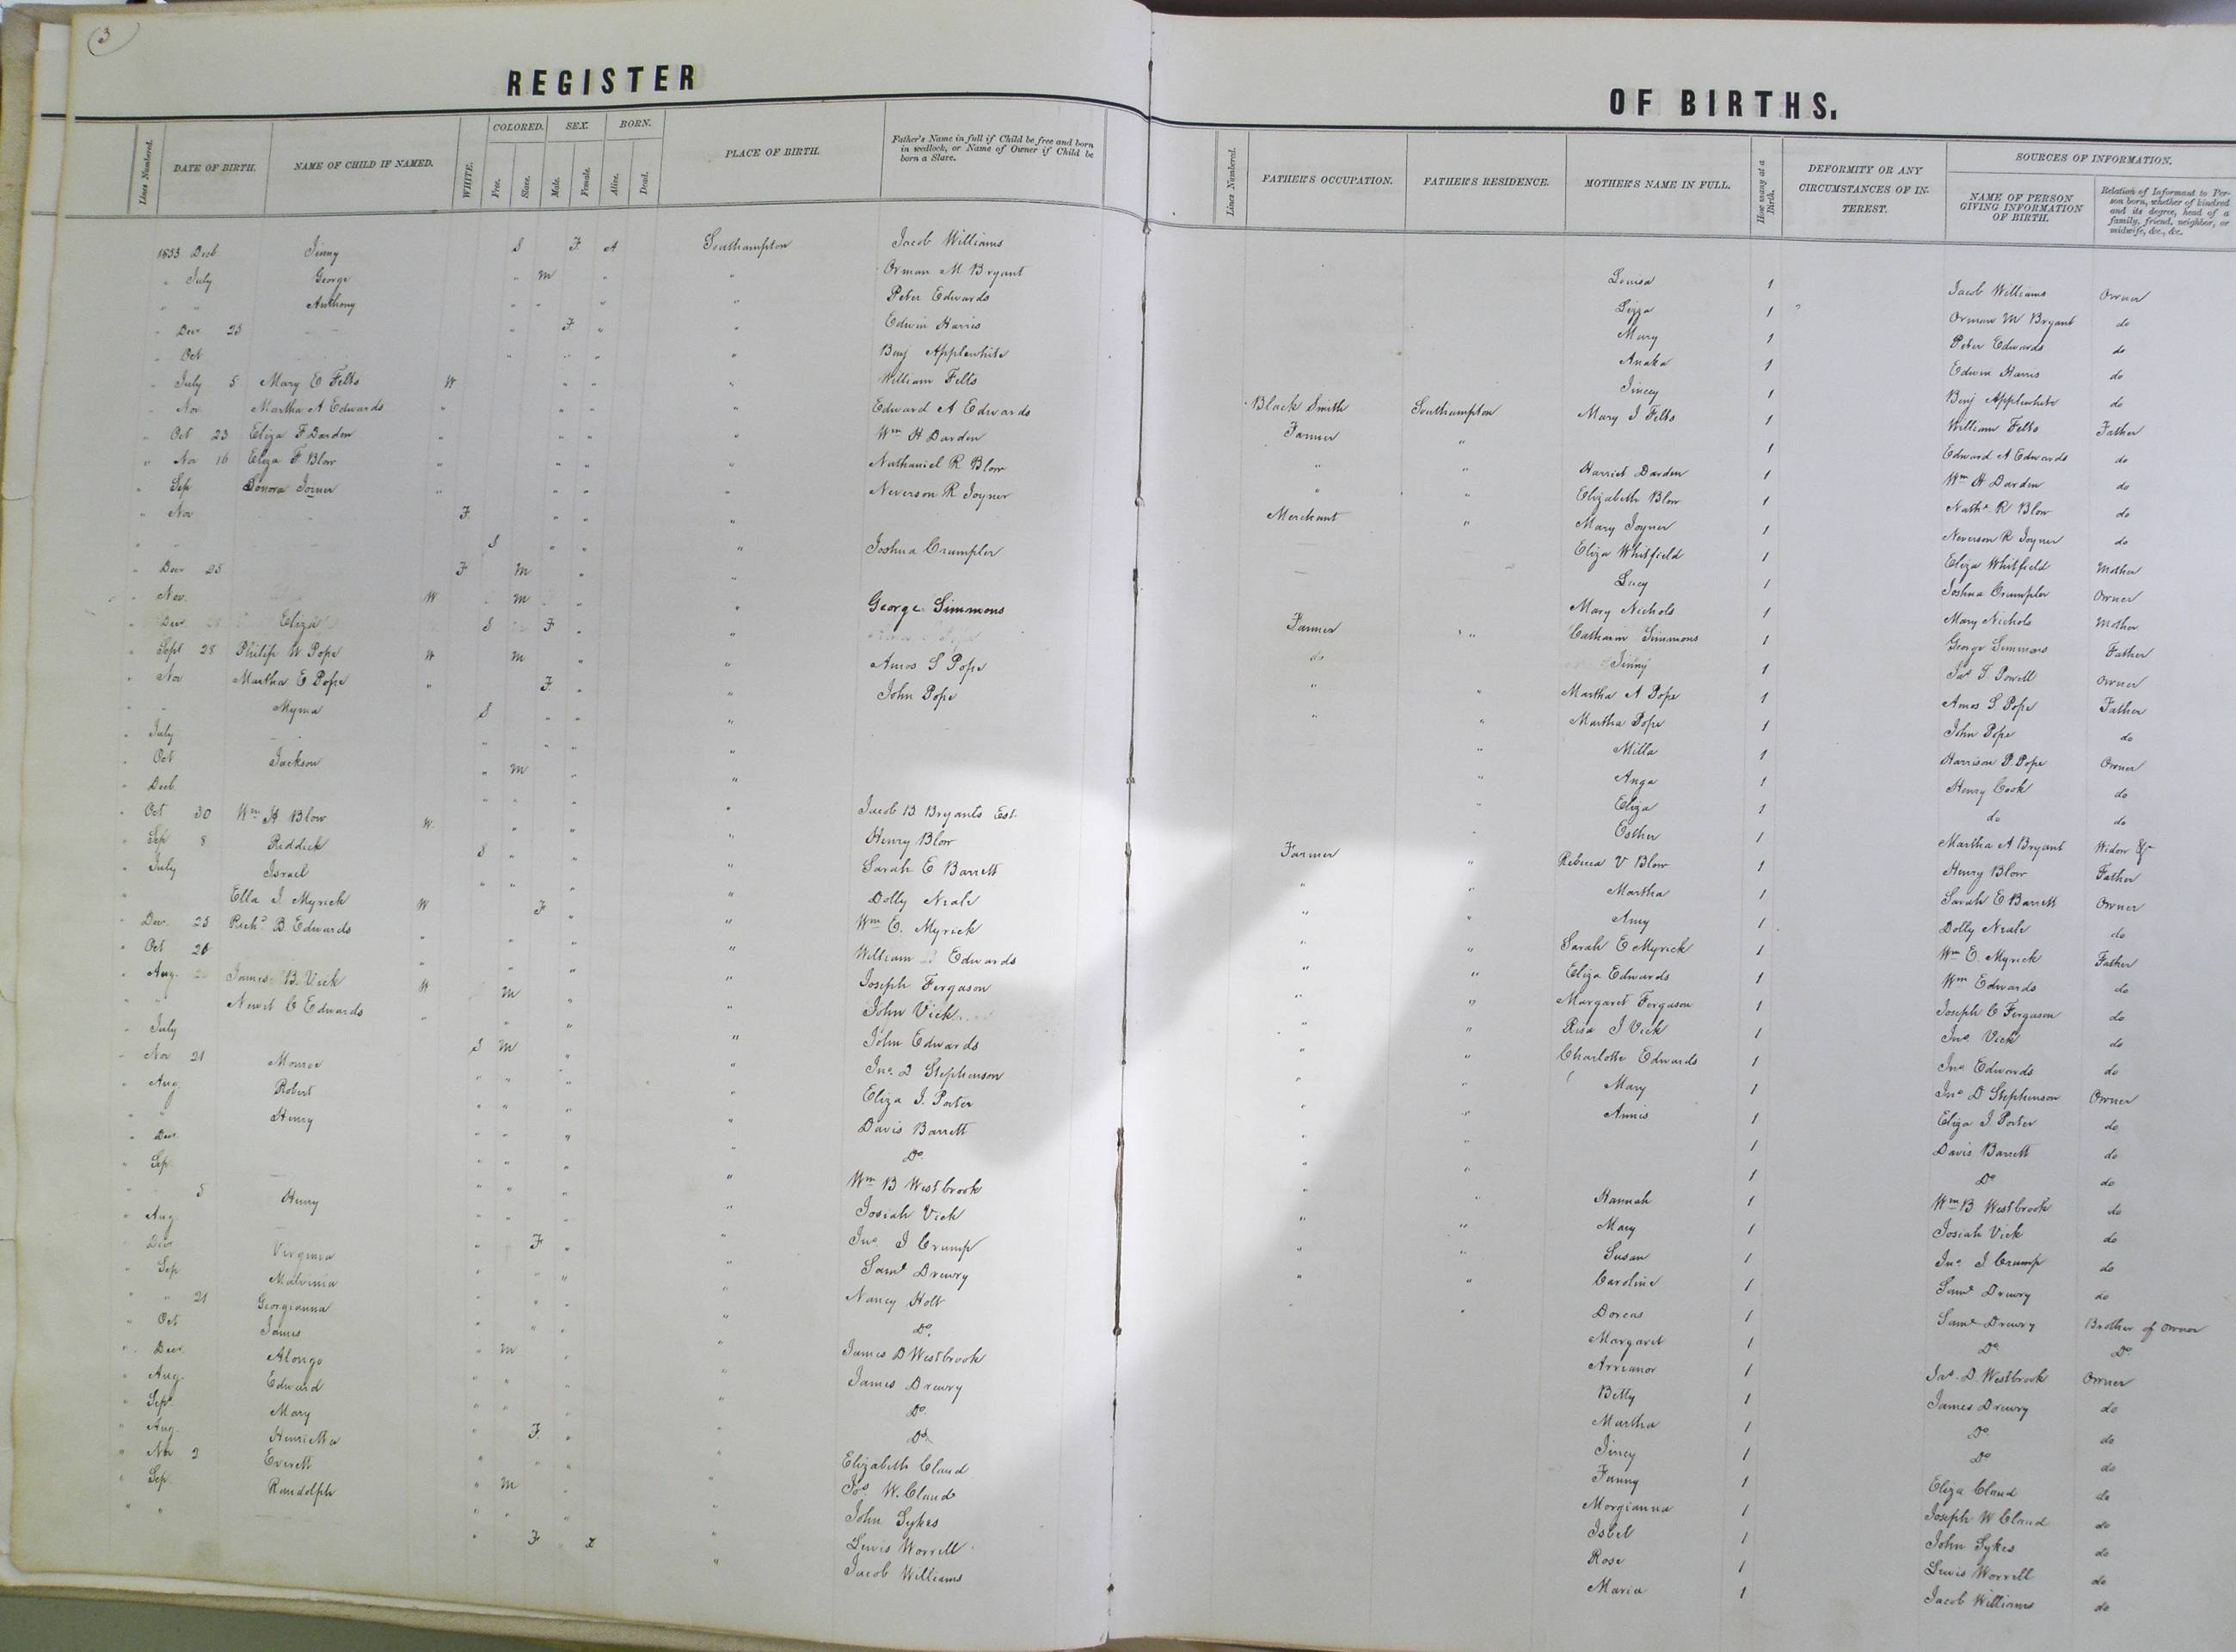 3
REGISTER OF BIRTHS.
Lines Numbered. DATE OF BIRTH. NAME OF CHILD IF NAMED. WHITE. COLORED. Free. Slave. SEX. Male. Female. BORN. Alive. Dead. PLACE OF BIRTH. Father's Name in full if Child be free and born in wedlock, or Name of Owner if Child be born a Slave.
Lines Numbered. FATHER'S OCCUPATION. FATHER'S RESIDENCE. MOTHER'S NAME IN FULL. How many at a Birth. DEFORMITY OR ANY CIRCUMSTANCES OF INTEREST. SOURCES OF INFORMATION. NAME OF PERSON GIVING INFORMATION OF BIRTH. Relation of Informant to Person born, whether of kindred and its degree, head of a family, friend, neighbor, or midwife, &c., &c.
1853 Decb Jinny S F A Southampton Jacob Williams
" July George " m " " Orman M Bryant
" " Anthony " " " " Peter Edwards
" Decr 25 " F " " Edwin Harris
" Oct " " " " Benj Applewhite
" July 5 Mary E Felts W " " " William Felts
" Nov Martha A Edwards " " " " Edward A Edwards
" Oct 23 Eliza F Darden " " " " Wm H Darden
" Nov 16 Eliza F Blow " " " " Nathaniel R Blow
" Sep Sonora Joyner " " " " Neverson R Joyner
" Nov F " " "
" " S " " " Joshua Crumpler
" Decr 25 F m " "
" Nov. W m " " George Simmons
" Decr Eliza S F " "
" Sept 28 Philip W Pope W m " " Amos S Pope
" Nov Martha E Pope " F " " John Pope
" " Myma S " " "
" July " " " "
" Oct Jackson " m " "
" Decb. " " " " Jacob B Bryants Est.
" Oct 30 Wm H Blow W. " " " Henry Blow
" Sep 8 Reddick S " " " Sarah E Barrett
" July Israel " " " " Dolly Neale
" Ella J. Myrick W F " " Wm E. Myrick
" Decr. 25 Richd B. Edwards " " " " William Edwards
" Oct 26 " " " " Joseph Ferguson
" Aug. James B. Vick W m " " John Vick
" " Newit C Edwards " " " " John Edwards
" July S m " " Jno. D Stephenson
" Nov 21 Monroe " " " " Eliza J. Porter
" Aug Robert " " " " Davis Barrett
" " Henry " " " " Do
" Decr " " " " Wm B Westbrook
" Sep " " " " Josiah Vick
" " 5 Henry " " " " Jno J Crump
" Aug " F " " Saml Drewry
" Decr Virginia " " " " Nancy Holt
" Sep Malvinia " " " " Do.
" " 21 Georgianna " " " " James D Westbrook
" Oct James " m " " James Drewry
" Decr. Alongo " " " " Do.
" Aug. Edward " " " " Do
" Sept Mary " F. " " Elizabeth Claud
" Aug. Henrietta " " " " Jos. W. Claud
" Nov 2 Everett " m " " John Sykes
" Sep. Randolph " " " " Lewis Worrell
" " " F " x " Jacob Williams
Louisa 1 Jacob Williams Owner
Lizza 1 Orman M Bryant do
Mary 1 Peter Edwards do
Anaka 1 Edwin Harris do
Jincey 1 Benj Applewhite do
Black Smith Southampton Mary J Felts 1 William Felts Father
Farmer " 1 Edward A Edwards do
" " Harriet Darden 1 Wm H Darden do
" " Elizabeth Blow 1 Nathl R Blow do
Merchant " Mary Joyner 1 Neverson R Joyner do
Eliza Whitfield 1 Eliza Whitfield Mother
Lucy 1 Joshua Crumpler Owner
Mary Nichols 1 Mary Nichols Mother
Farmer " " Catharin Simmons 1 George Simmons Father
do Jinny 1 Jas T. Powell Owner
" " Martha A Pope 1 Amos S Pope Father
" " Martha Pope 1 John Pope do
" Milla 1 Harrison P. Pope Owner
" Anga 1 Henry Cook do
" Eliza 1 do do
" Esther 1 Martha A Bryant Widow &c
Farmer " Rebecca V Blow 1 Henry Blow Father
" " Martha 1 Sarah E Barrett Owner
" " Amy 1 Dolly Neale do
" " Sarah E Myrick 1 Wm E. Myrick Father
" " Eliza Edwards 1 Wm Edwards do
" " Margaret Ferguson 1 Joseph C Ferguson do
" " Risa J Vick 1 Jno. Vick do
" " Charlotte Edwards 1 Jno Edwards do
" " Mary 1 Jno D Stephenson Owner
" " Annis 1 Eliza J Porter do
" " 1 Davis Barrett do
" " 1 Do do
" " Hannah 1 Wm B Westbrook do
" " Mary 1 Josiah Vick do
" " Susan 1 Jno. J Crump do
" " Caroline 1 Saml Drewry do
" " Dorcas 1 Saml Drewry Brother of Owner
Margaret 1 Do Do
Arreanor 1 Jas. D. Westbrook Owner
Betty 1 James Drewry do
Martha 1 Do do
Jincy 1 Do do
Fanny 1 Eliza Claud do
Morgianna 1 Joseph W Claud do
Isbel 1 John Sykes do
Rose 1 Lewis Worrell do
Maria 1 Jacob Williams do